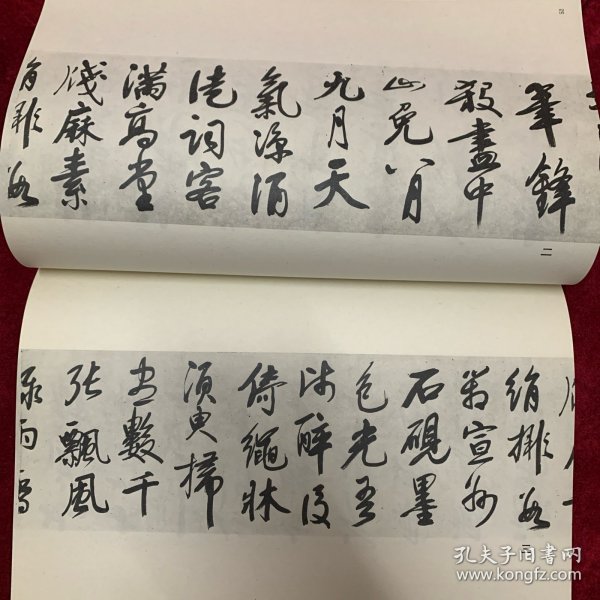 筆鋒
殺盡中
山兔八月
九月天
氣涼酒
徒詞客
滿高堂
牋麻素
絹排數
二
絹排數
箱宣州
石硯墨
色光吾
師醉後
倚繩牀
須臾掃
盡數千
張飄風
孔夫子旧书网
www.kongfz.com